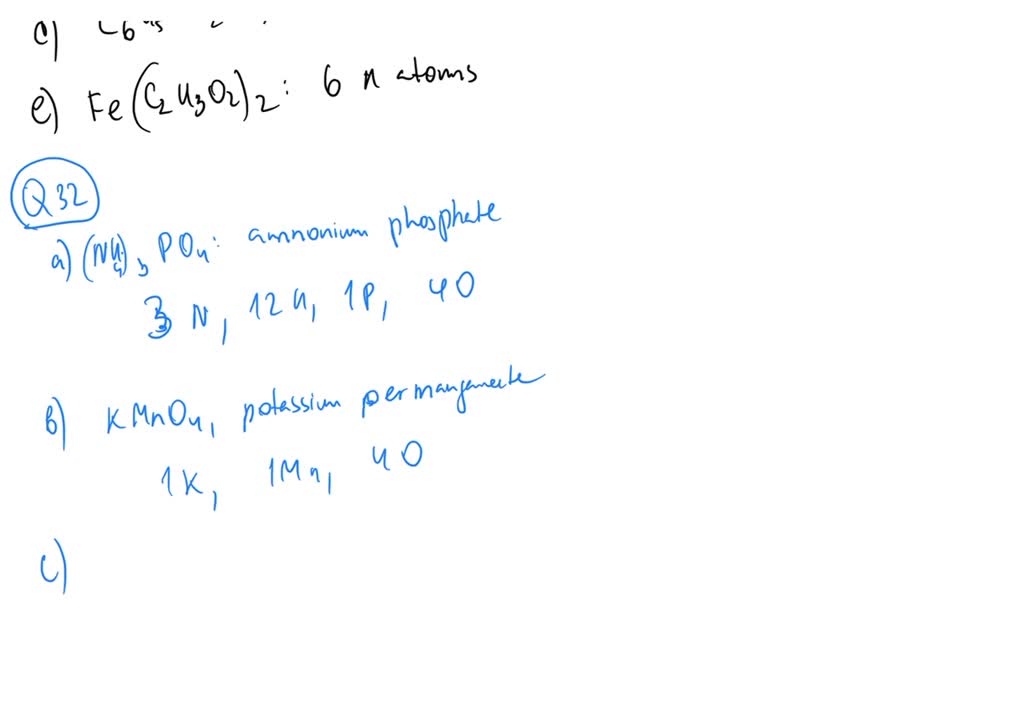 e) Fe(C2H3O2)2: 6 H atoms
Q32
a) (NH4)3 PO4: ammonium phosphate
3 N, 12H, 1P, 4O
b) KMnO4, potassium permanganate
1K, 1Mn, 4O
c)